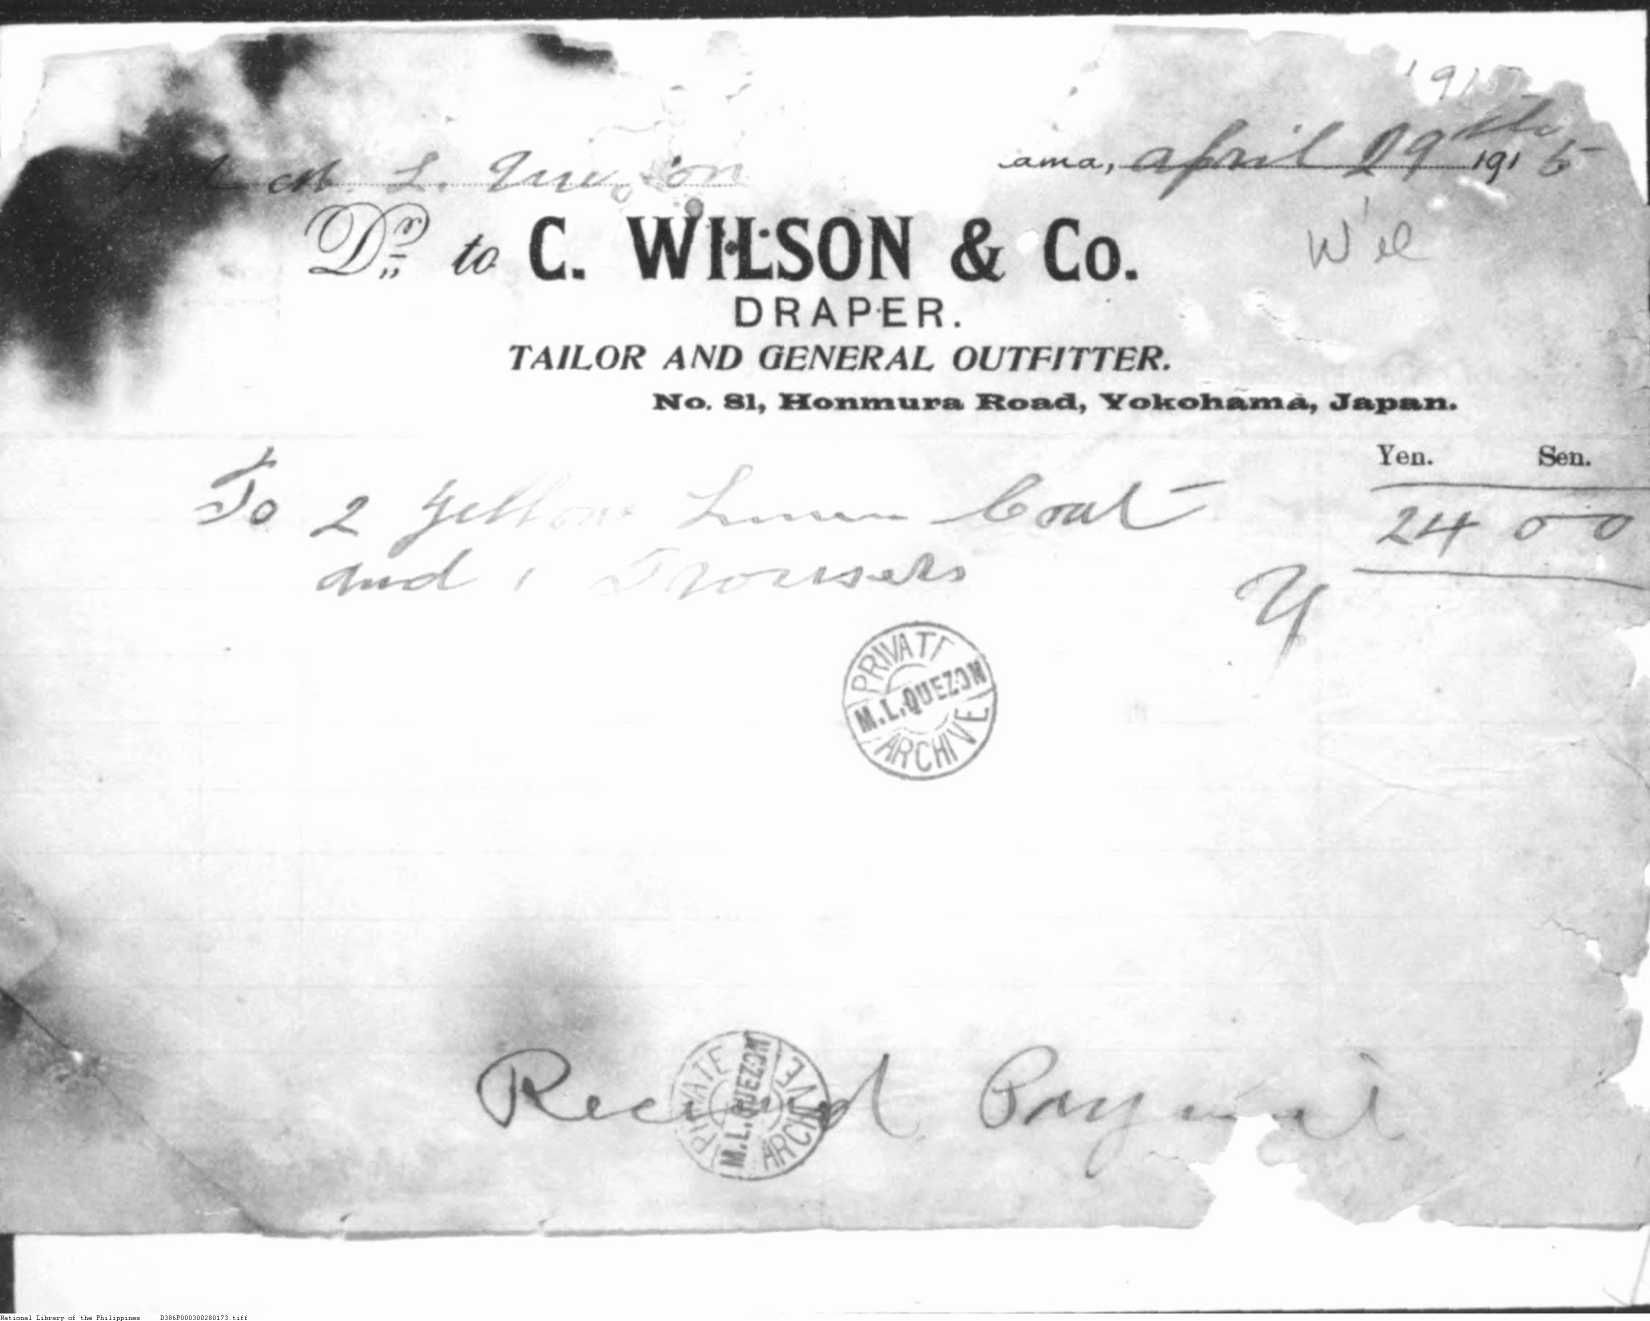 1915
ama, April 29th 1915
L. Quezon
Dr. to C. WILSON & Co.
W'el
DRAPER.
TAILOR AND GENERAL OUTFITTER.
No. 81, Honmura Road, Yokohama, Japan.
Yen. Sen.
To 2 Yellow Linen Coat 24 00
and 1 Trousers
PRIVATE
M.L.QUEZON
ARCHIVE
Received Payment
PRIVATE
M.L.QUEZON
ARCHIVE
National Library of the Philippines D386P000300280173.tiff